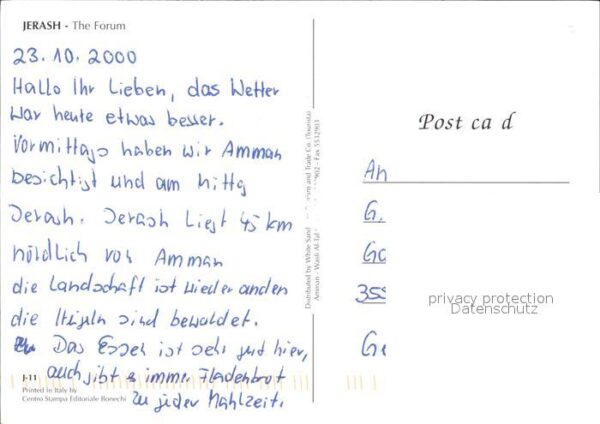 JERASH - The Forum
23.10.2000
Hallo Ihr Lieben, das Wetter
war heute etwas besser.
Vormittags haben wir Amman
besichtigt und am Mittg
Jerash. Jerash liegt 45 km
nördlich von Amman
die Landschaft ist wieder anders
die Hügeln sind bewaldet.
Das Essen ist sehr gut hier,
auch gibt es immer Fladenbrot
zu jeder Mahlzeit.
J-11
Printed in Italy by
Centro Stampa Editoriale Bonechi
Distributed by White Sand
Amman - Wasfi Al-Tal
Tourism and Trade Co. (Tourista)
- Fax 5532903
Post ca d
An
G.
Ga
355
Ge
privacy protection
Datenschutz